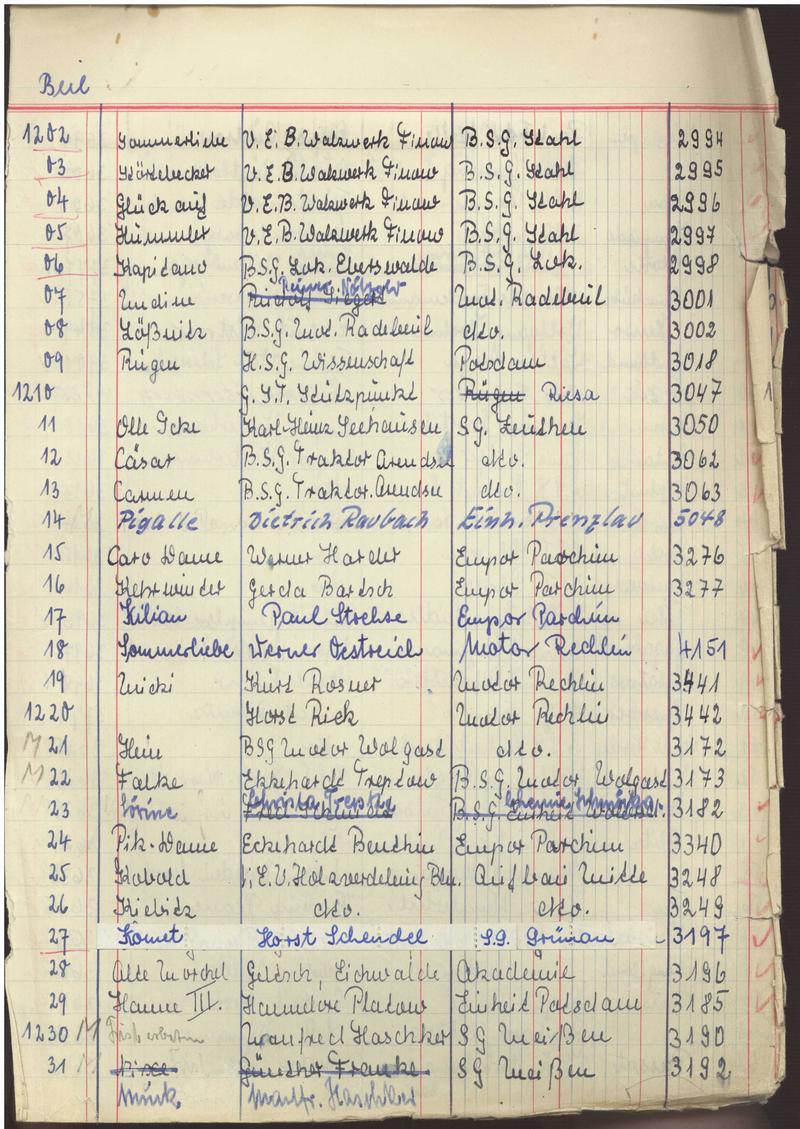 1202 Sommerliebe V.E.B. Walzwerk Finow B.S.G. Stahl 2994
03 Störtebecker V.E.B. Walzwerk Finow B.S.G. Stahl 2995
04 Glück auf V.E.B. Walzwerk Finow B.S.G. Stahl 2996
05 Hümmler V.E.B. Walzwerk Finow B.S.G. Stahl 2997
06 Kapitano B.S.G. Lok. Eberswalde B.S.G. Lok. 2998
07 Undine Rudolf Mot. Radebeul 3001
08 Lößnitz B.S.G. Mot. Radebeul dto. 3002
09 Rügen H.S.G. Wissenschaft Potsdam 3018
1210 G.S.T. Stützpunkt Rügen Riesa 3047
11 Olle Icke Karl-Heinz Seehausen SG. Zeuthen 3050
12 Cäsar B.S.G. Traktor Arendsee dto. 3062
13 Carmen B.S.G. Traktor. Arendsee dto. 3063
14 Pigalle Dietrich Raubach Einh. Prenzlau 5048
15 Caro Dame Werner Harder Empor Parchim 3276
16 Kehrwieder Gerda Bartsch Empor Parchim 3277
17 Kilian Paul Strehse Empor Parchim
18 Sommerliebe Werner Oestreich Motor Rechlin 4151
19 Micki Kurt Rosner Motor Rechlin 3441
1220 Horst Rick Motor Rechlin 3442
M 21 Hein BSG Motor Wolgast dto. 3172
M 22 Falke Ekkehardt Treptow B.S.G. Motor Wolgast 3173
23 Christa B.S.G. Einheit 3182
24 Pik-Dame Eckhardt Benthin Empor Parchim 3340
25 Kobold V.E.V. Holzveredelung Bln. Aufbau Mitte 3248
26 Kiebitz dto. dto. 3249
27 Komet Horst Schendel S.G. Grünau 3197
28 Alte Morchel Geldsch, Eichwalde Akademie 3196
29 Hanne III. Hannelore Platow Einheit Potsdam 3185
1230 M Manfred Haschker SG Meißen 3190
31 M Nixe Günther Franke SG Meißen 3192
Manfr. Haschker